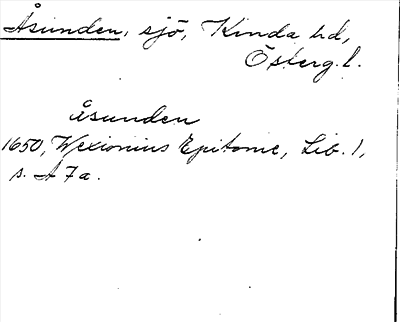 Åsunden, sjö, Kinda hd,
Österg.l.
åsunden
1650, Wexionius Epitome, Lib. 1,
s. A 7a.